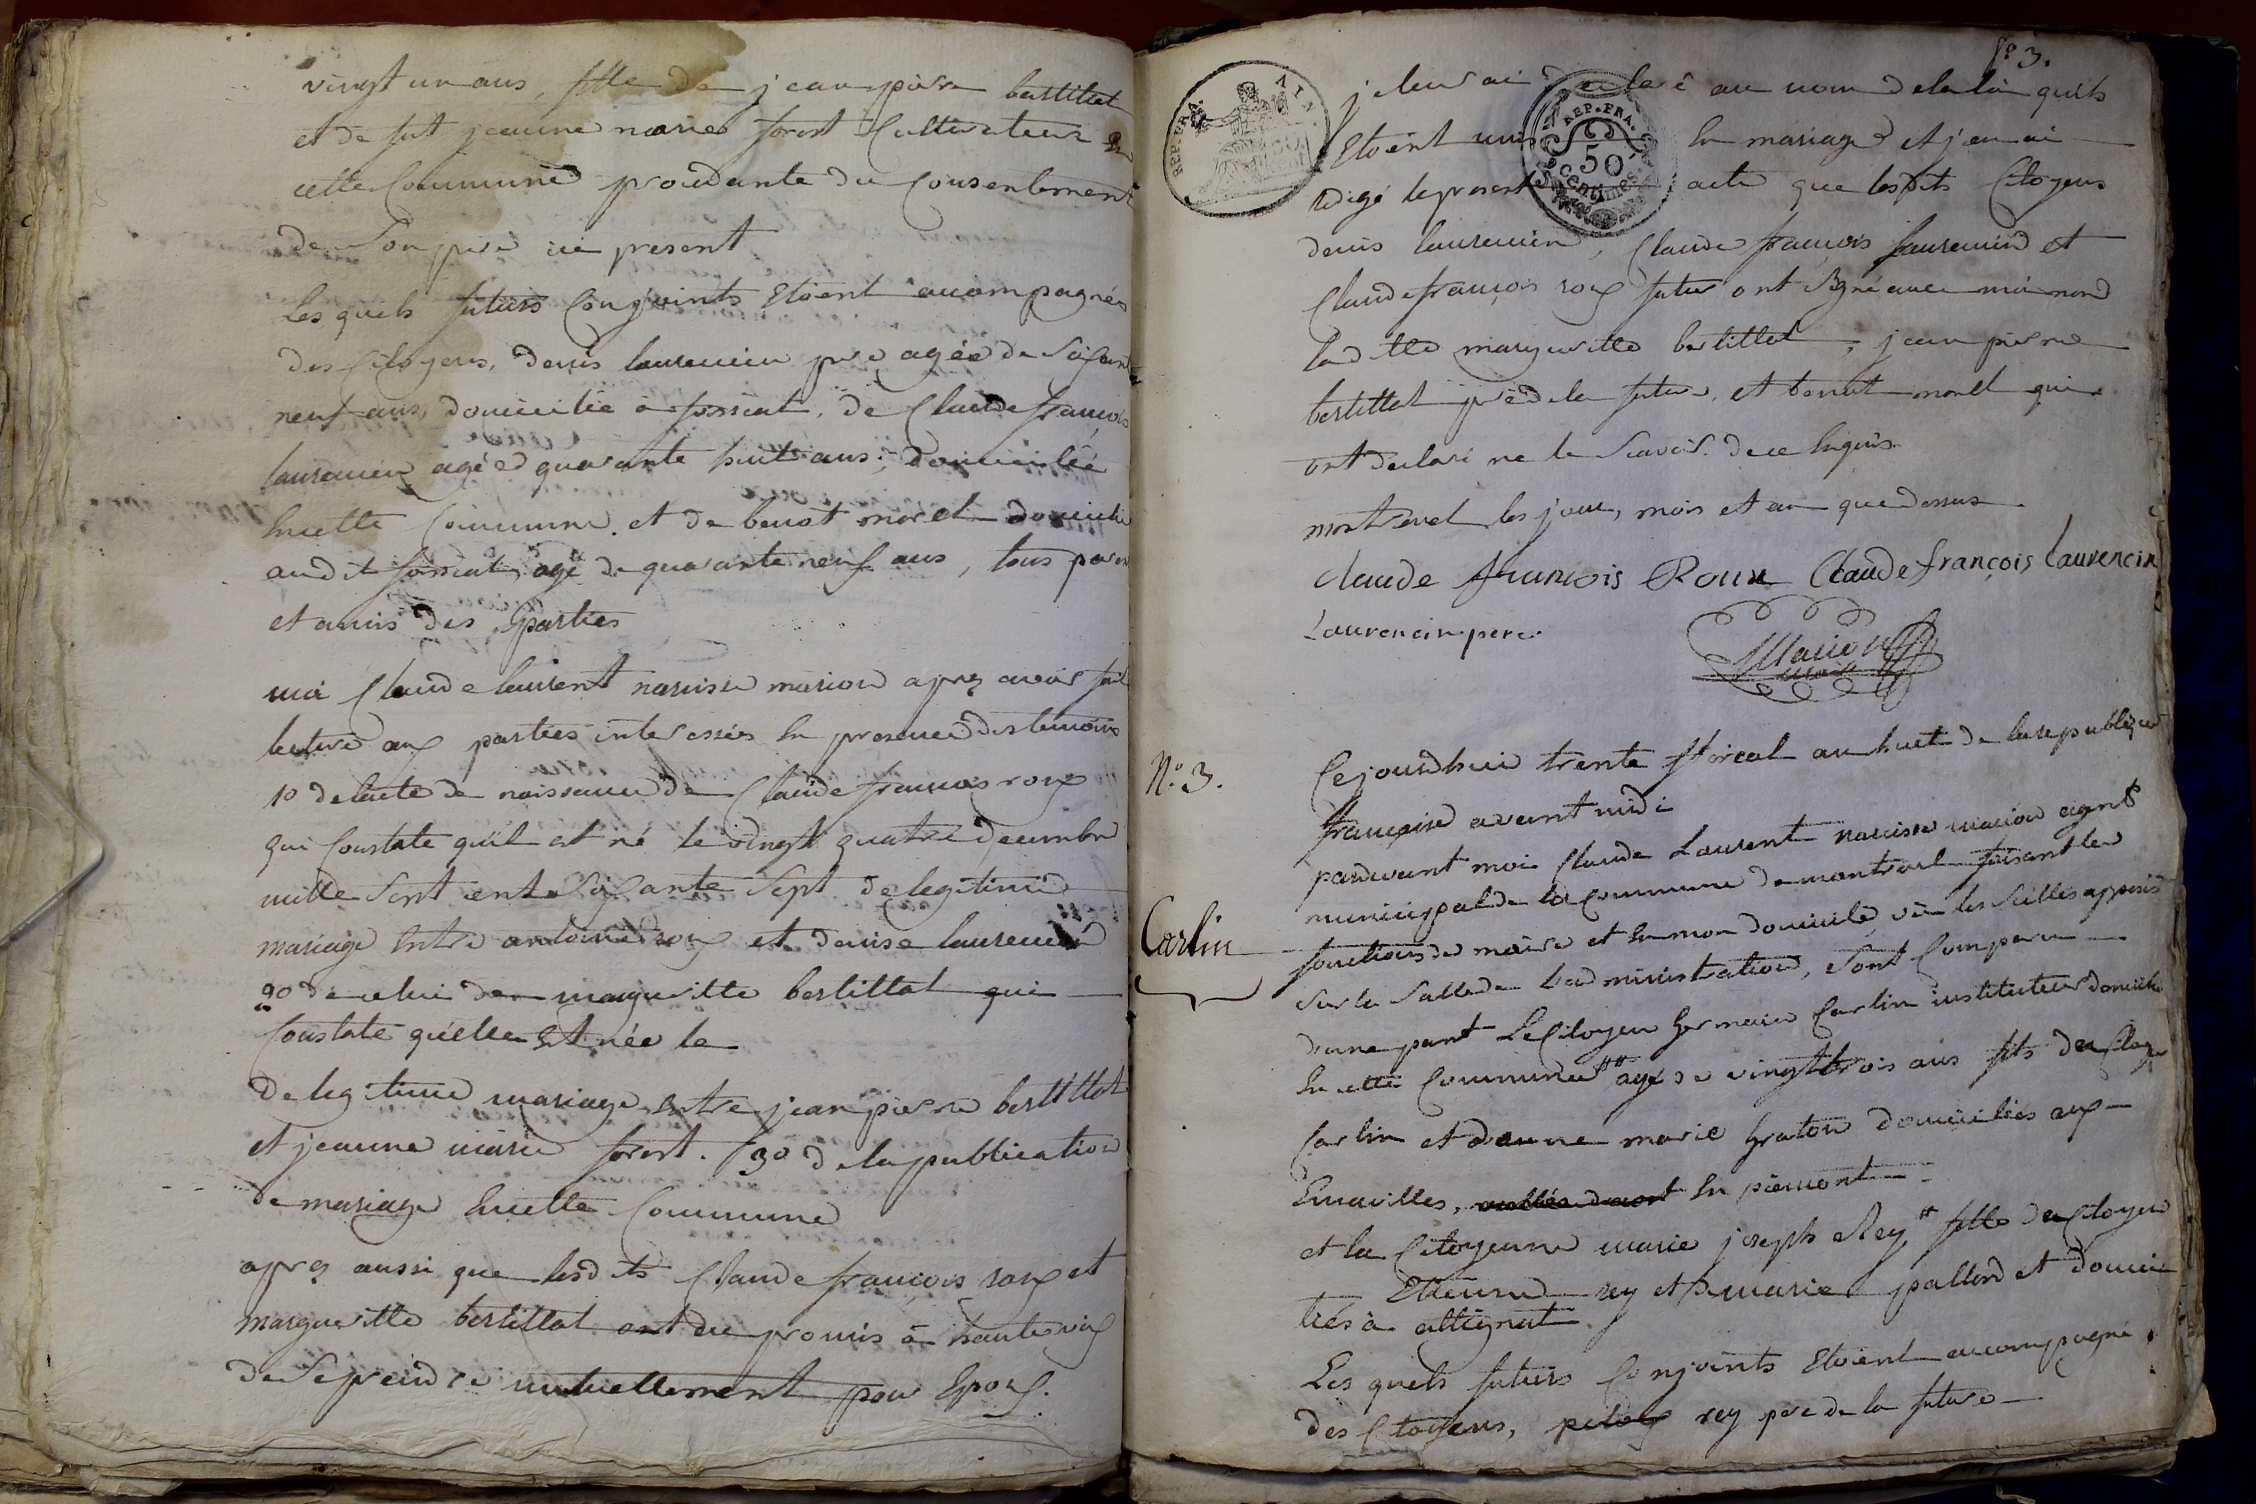 vingt un ans, fille de jean pierre bertillot
et de fut jeanne marie forest Cultivateur En
cette Commune procedante du Consentement
de Son pere ici present
Les quels futurs Conjoints Etoient acompagnés
des Citoyens, denis laurencin pere agée de Soixante
neuf ans, domicilié à foissiat, de Claude françois
laurencin agée quarante huit ans, domiciliée
Encette Commune. et de benoit morel domicilié
audit foissiat, agé de quarante neuf ans, tous parens
et amis des parties
moi Claude laurent narcisse marion aprez avoir fait
lecture aux parties interessées En presence des temoins
1o delacte de naissance de Claude françois roux
qui Constate quil est né le vingt quatre decembre
mille Sept cent Soixante Sept de legitime
mariage Entre antoine roux et denise laurencin
2o de celui de margueritte bertillot qui
Constate qu'elle Est née le
De legitime mariage Entre jean pierre bertillot
et jeanne marie forest. 3o de la publication
de mariage Encette Commune
aprez aussi que lesdits Claude françois roux et
margueritte bertillot ont de promis à haute voix
de Seprendre mutuellement pour Epoux.
fo 3.
REP. FRA. AIN
REP. FRA.
50
Centimes
je leur ai declaré au nom delaloi quils
Etoient unis En mariage et j'en ai
redigé lepresent acte que lesdits Citoyens
denis laurencin, Claude françois laurencin et
Claude françois roux futur ont Signé avec moi non
laditte margueritte bertillot, jean pierre
bertillot pere dela future, et benoit morel qui
ont declaré ne le Scavoir. dece Enquis
montrevel les jour, mois et an que dessus
Claude francois Roux Claude françois Laurencin
Laurencin pere
Marion
No. 3.
Cejourdhui trente floreal an huit de la republique
française avant midi
Carlin
pardevant moi Claude Laurent narcisse marion agent
municipal de la Commune de montrevel faisant les
fonctions de maire et En mon domicile, vû les Scellés apposés
Sur la Salle de L'administration, Sont Comparu
d'une part Le Citoyen germain Carlin instituteur domicilié
En cette Commune agé de vingt trois ans fils de
Carlin et d'anne marie graton domiciliés aux
Emavilles, En piemont
et la Citoyenne marie joseph Rey fille du Citoyen
Etienne rey et de marie pallord et domici
liés à attignat.
Les quels futurs Conjoints Etoient acompagné
des Citoyens, rey pere de la future